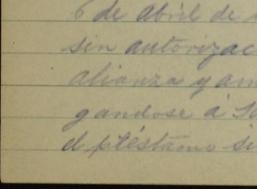 6 de Abril de
sin autorizac
alianza y am
gandose á
el préstamo si